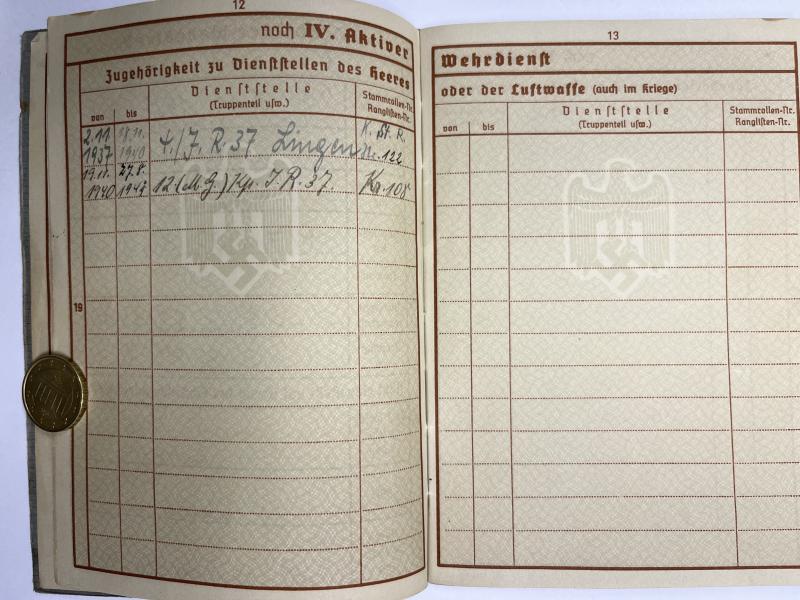 12
noch IV. Aktiver
Zugehörigkeit zu Dienststellen des Heeres
von
bis
Dienststelle
(Truppenteil usw.)
Stammrollen-Nr.
Ranglisten-Nr.
2.11. 18.11. K. St. R.
1937 1940 4./J. R. 37 Lingen Nr. 122
19.11. 27.8.
1940 12.(M.G.) Kp. J. R. 37.
19
13
Wehrdienst
oder der Luftwaffe (auch im Kriege)
von
bis
Dienststelle
(Truppenteil usw.)
Stammrollen-Nr.
Ranglisten-Nr.